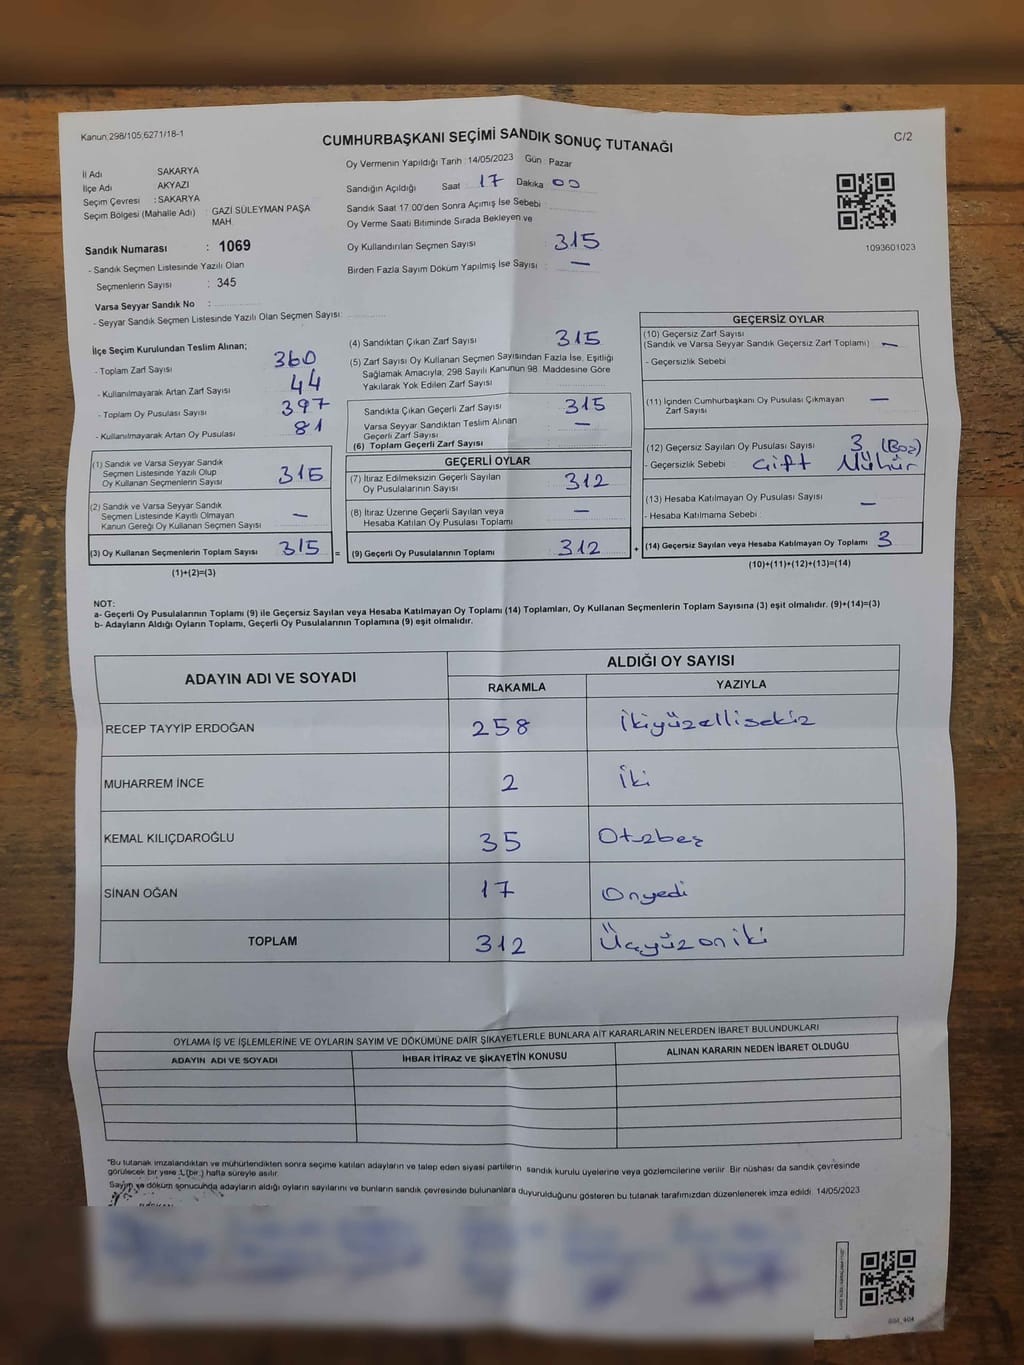 Kanun;298/105;6271/18-1
CUMHURBAŞKANI SEÇİMİ SANDIK SONUÇ TUTANAĞI
C/2
İl Adı SAKARYA
İlçe Adı AKYAZI
Seçim Çevresi : SAKARYA
Seçim Bölgesi (Mahalle Adı) : GAZİ SÜLEYMAN PAŞA
MAH.
Sandık Numarası : 1069
- Sandık Seçmen Listesinde Yazılı Olan
Seçmenlerin Sayısı : 345
Varsa Seyyar Sandık No :
- Seyyar Sandık Seçmen Listesinde Yazılı Olan Seçmen Sayısı:
Oy Vermenin Yapıldığı Tarih : 14/05/2023 Gün : Pazar
Sandığın Açıldığı Saat 17 Dakika 00
Sandık Saat 17:00'den Sonra Açımış İse Sebebi :
Oy Verme Saati Bitiminde Sırada Bekleyen ve
Oy Kullandırılan Seçmen Sayısı 315
Birden Fazla Sayım Döküm Yapılmış İse Sayısı : —
1093601023
İlçe Seçim Kurulundan Teslim Alınan;
- Toplam Zarf Sayısı 360
- Kullanılmayarak Artan Zarf Sayısı 44
- Toplam Oy Pusulası Sayısı 397
- Kullanılmayarak Artan Oy Pusulası 81
(1) Sandık ve Varsa Seyyar Sandık
Seçmen Listesinde Yazılı Olup
Oy Kullanan Seçmenlerin Sayısı 315
(2) Sandık ve Varsa Seyyar Sandık
Seçmen Listesinde Kayıtlı Olmayan
Kanun Gereği Oy Kullanan Seçmen Sayısı —
(3) Oy Kullanan Seçmenlerin Toplam Sayısı 315 =
(1)+(2)=(3)
(4) Sandıktan Çıkan Zarf Sayısı 315
(5) Zarf Sayısı Oy Kullanan Seçmen Sayısından Fazla İse, Eşitliği
Sağlamak Amacıyla; 298 Sayılı Kanunun 98. Maddesine Göre
Yakılarak Yok Edilen Zarf Sayısı
Sandıkta Çıkan Geçerli Zarf Sayısı 315
Varsa Seyyar Sandıktan Teslim Alınan
Geçerli Zarf Sayısı —
(6) Toplam Geçerli Zarf Sayısı
GEÇERLİ OYLAR
(7) İtiraz Edilmeksizin Geçerli Sayılan
Oy Pusulalarının Sayısı 312
(8) İtiraz Üzerine Geçerli Sayılan veya
Hesaba Katılan Oy Pusulası Toplamı —
(9) Geçerli Oy Pusulalarının Toplamı 312 +
GEÇERSİZ OYLAR
(10) Geçersiz Zarf Sayısı
(Sandık ve Varsa Seyyar Sandık Geçersiz Zarf Toplamı) —
- Geçersizlik Sebebi
(11) İçinden Cumhurbaşkanı Oy Pusulası Çıkmayan
Zarf Sayısı —
(12) Geçersiz Sayılan Oy Pusulası Sayısı 3 (Boz)
- Geçersizlik Sebebi Çift Mühür
(13) Hesaba Katılmayan Oy Pusulası Sayısı
- Hesaba Katılmama Sebebi : —
(14) Geçersiz Sayılan veya Hesaba Katılmayan Oy Toplamı 3
(10)+(11)+(12)+(13)=(14)
NOT:
a- Geçerli Oy Pusulalarının Toplamı (9) ile Geçersiz Sayılan veya Hesaba Katılmayan Oy Toplamı (14) Toplamları, Oy Kullanan Seçmenlerin Toplam Sayısına (3) eşit olmalıdır. (9)+(14)=(3)
b- Adayların Aldığı Oyların Toplamı, Geçerli Oy Pusulalarının Toplamına (9) eşit olmalıdır.
ADAYIN ADI VE SOYADI ALDIĞI OY SAYISI
RAKAMLA YAZIYLA
RECEP TAYYİP ERDOĞAN 258 İkiyüzellisekiz
MUHARREM İNCE 2 İki
KEMAL KILIÇDAROĞLU 35 Otuzbeş
SİNAN OĞAN 17 Onyedi
TOPLAM 312 Üçyüzoniki
OYLAMA İŞ VE İŞLEMLERİNE VE OYLARIN SAYIM VE DÖKÜMÜNE DAİR ŞİKAYETLERLE BUNLARA AİT KARARLARIN NELERDEN İBARET BULUNDUKLARI
ADAYIN ADI VE SOYADI İHBAR İTİRAZ VE ŞİKAYETİN KONUSU ALINAN KARARIN NEDEN İBARET OLDUĞU
*Bu tutanak imzalandıktan ve mühürlendikten sonra seçime katılan adayların ve talep eden siyasi partilerin sandık kurulu üyelerine veya gözlemcilerine verilir. Bir nüshası da sandık çevresinde
görülecek bir yere 1 (bir) hafta süreyle asılır.
Sayım ve döküm sonucunda adayların aldığı oyların sayılarını ve bunların sandık çevresinde bulunanlara duyurulduğunu gösteren bu tutanak tarafımızdan düzenlenerek imza edildi. 14/05/2023